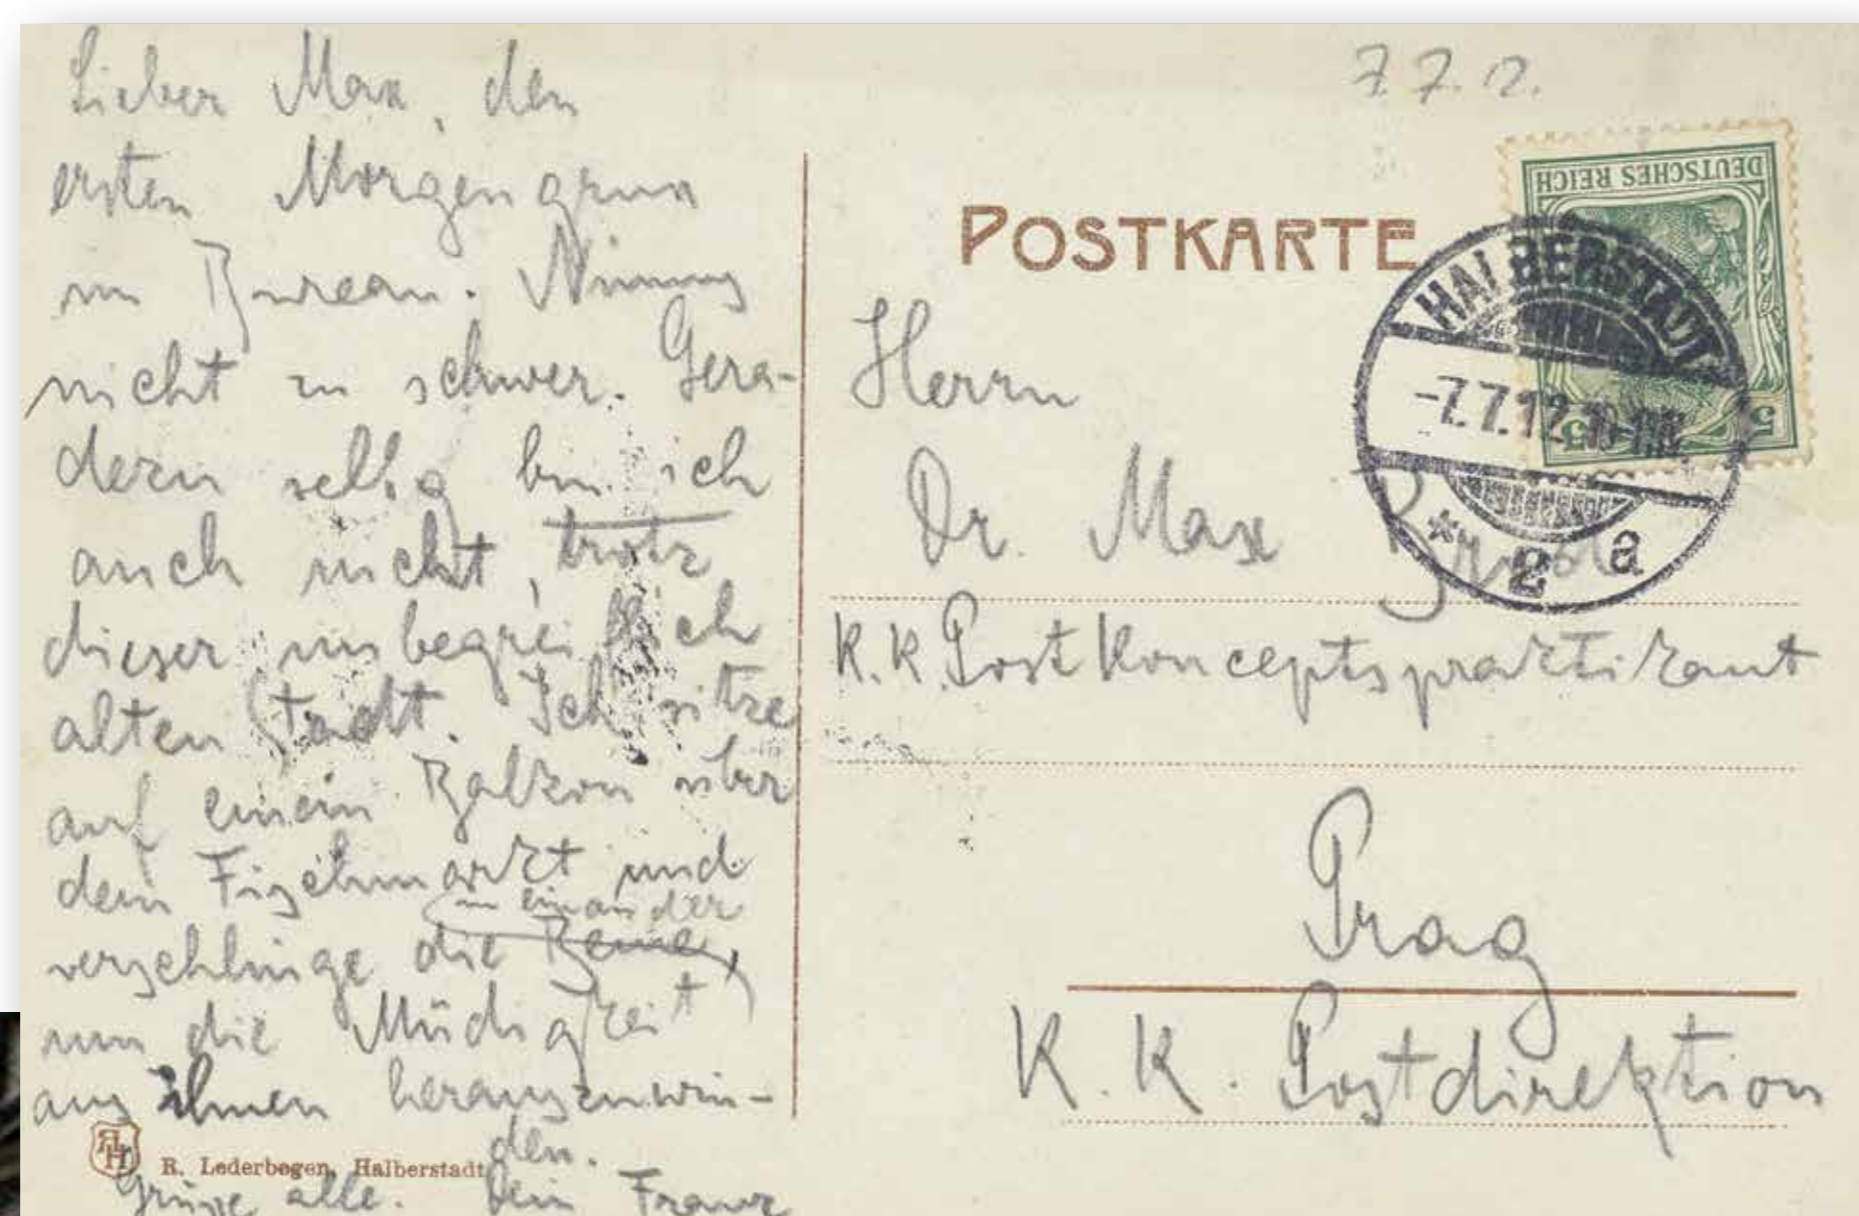 Lieber Max, den
ersten Morgengruss
im Bureau. Nimms
nicht zu schwer. Gera-
dezu selig bin ich
auch nicht, trotz
dieser unbegreiflich
alten Stadt. Ich sitze
auf einem Balkon über
dem Fischmarkt und
in einander
verschlinge die Beine,
um die Müdigkeit
aus ihnen herauszuwin-
den.
Grüsse alle. Dein Franz
R. Lederbogen, Halberstadt
7.7.12.
DEUTSCHES REICH
5 5
POSTKARTE
HALBERSTADT
-7.7.12
* 2 a
Herrn
Dr. Max Brod
K.K. Postkonceptspraktikant
Prag
K. K. Postdirektion